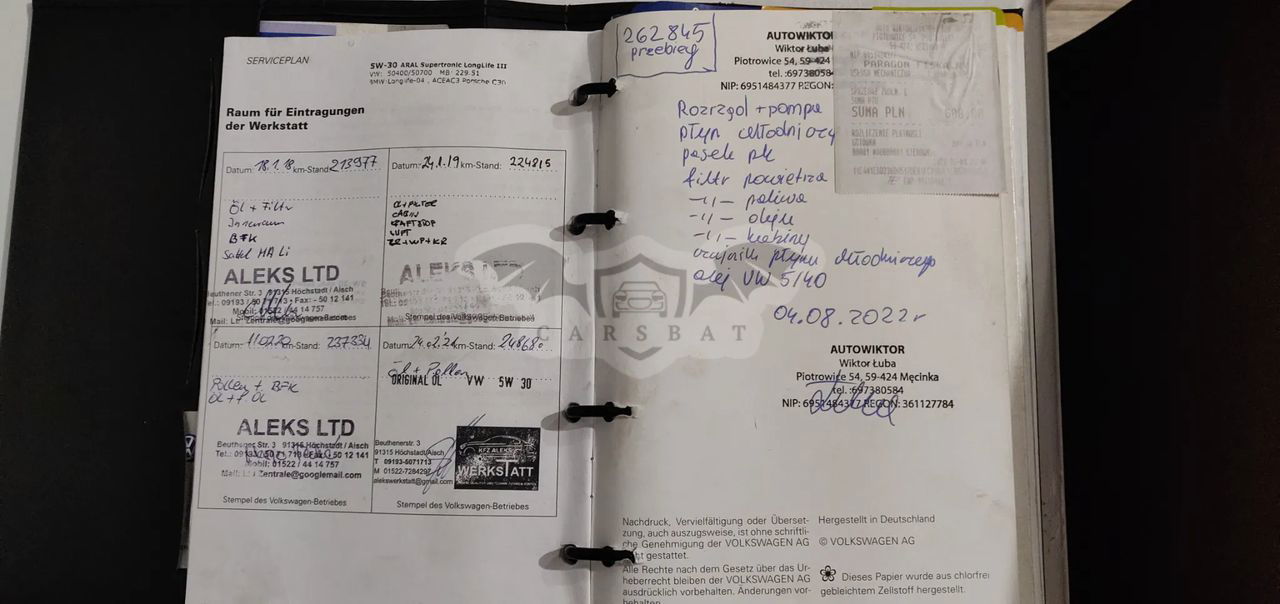 SERVICEPLAN
5W-30 ARAL Supertronic LongLife III
VW: 50400/50700 MB: 229.51
BMW Longlife-04, ACEAC3 Porsche C30
Raum für Eintragungen
der Werkstatt
Datum: 18.1.18 km-Stand: 213977
Öl + Filtr
Innenraum
BFK
Sattel HA Li
ALEKS LTD
Beuthener Str. 3 91315 Höchstadt / Aisch
Tel.: 09193 / 50 71 713 • Fax: - 50 12 141
Mobil: 01522 / 44 14 757
Stempel des Volkswagen-Betriebes
Datum: 24.1.19 km-Stand: 224815
Öl+FILTER
CABIN
KRAFTSTOF
LUFT
ZR+WP+KR
ALEKS LTD
Stempel des Volkswagen-Betriebes
Datum: 11.02.20 km-Stand: 237334
Pollen + BFK
ÖL + F. ÖL
ALEKS LTD
Beuthener Str. 3 91315 Höchstadt / Aisch
Tel.: 09193/50 71 713 Fax: - 50 12 141
Mobil: 01522 / 44 14 757
Stempel des Volkswagen-Betriebes
Datum: 24.02.21 km-Stand:
Öl + Pollen
ORIGINAL ÖL VW 5W 30
Beuthenerstr. 3
91315 Höchstadt/Aisch
T 09193-5071713
M 01522-7284297
alekswerkstatt@gmail.com
KFZ ALEKS
WERKSTATT
Stempel des Volkswagen-Betriebes
262845
przebieg
AUTOWIKTOR
Wiktor Łuba
Piotrowice 54, 59-424
tel.:69738058
NIP: 6951484377 REGON:
PARAGON FISKALNY
SUMA PLN
ROZLICZENIE PŁATNOŚCI
GOTÓWKA
Rozrząd + pompa
płyn chłodniczy
pasek pk
filtr powietrza
-\\- paliwa
-\\- oleju
-\\- kabiny
czujnik płynu chłodniczego
olej VW 5/40
04.08.2022r
CARSBAT
AUTOWIKTOR
Wiktor Łuba
Piotrowice 54, 59-424 Męcinka
tel.:697380584
NIP: 6951484377 REGON: 361127784
Nachdruck, Vervielfältigung oder Überset-
zung, auch auszugsweise, ist ohne schriftli-
che Genehmigung der VOLKSWAGEN AG
nicht gestattet.
Alle Rechte nach dem Gesetz über das Ur-
heberrecht bleiben der VOLKSWAGEN AG
ausdrücklich vorbehalten. Änderungen vor-
behalten.
Hergestellt in Deutschland
© VOLKSWAGEN AG
Dieses Papier wurde aus chlorfrei
gebleichtem Zellstoff hergestellt.